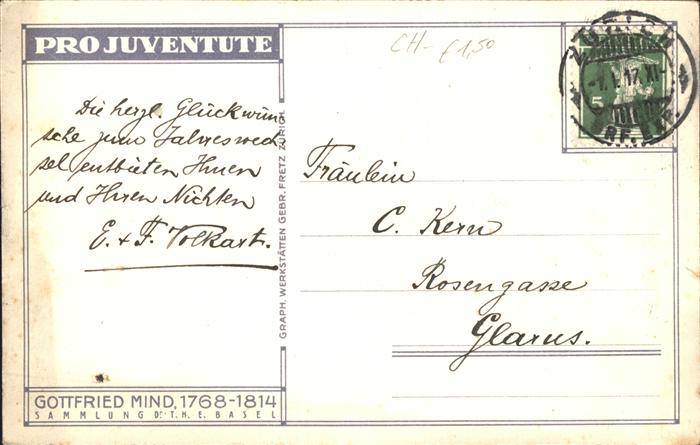 PRO JUVENTUTE
CH- £1,50
ZÜRICH
-1.I.17.XI-
BRF. EXP.
5
Die herzl. Glückwün
sche zum Jahreswech
sel entbieten Ihnen
und Ihren Nichten
E. + F. Volkart.
GRAPH. WERKSTÄTTEN GEBR. FRETZ ZÜRICH
Fräulein
C. Kern
Rosengasse
Glarus.
GOTTFRIED MIND, 1768-1814
SAMMLUNG DR. T. H. E. BASEL